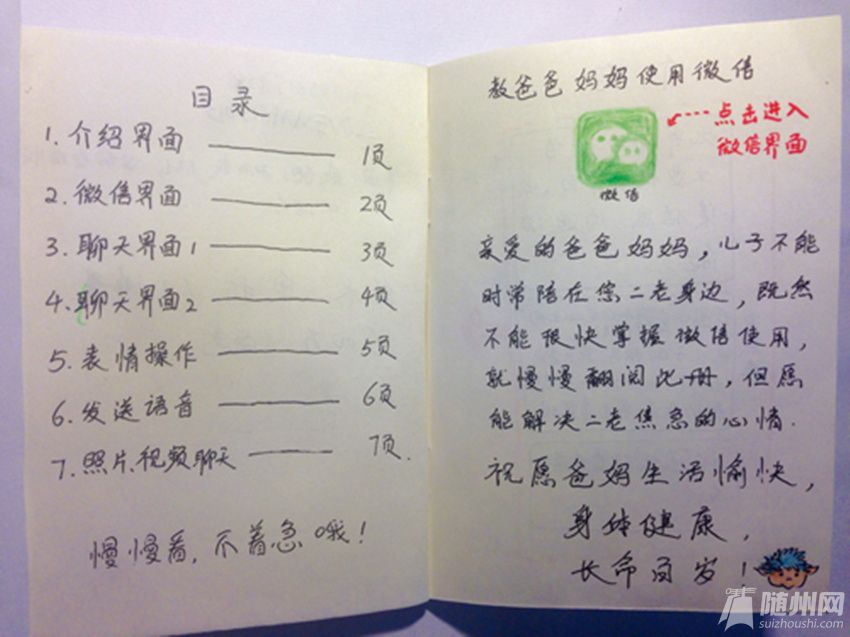 目录
1. 介绍界面 —— 1页
2. 微信界面 —— 2页
3. 聊天界面1 —— 3页
4. 聊天界面2 —— 4页
5. 表情操作 —— 5页
6. 发送语音 —— 6页
7. 照片、视频聊天 —— 7页.
慢慢看,不着急哦!
教爸爸妈妈使用微信
点击进入
微信界面
微信
亲爱的爸爸妈妈,儿子不能
时常陪在您二老身边,既然
不能很快掌握微信使用,
就慢慢翻阅此册,但愿
能解决二老焦急的心情.
祝愿爸妈生活愉快,
身体健康,
长命百岁!
随州网
suizhoushi.com